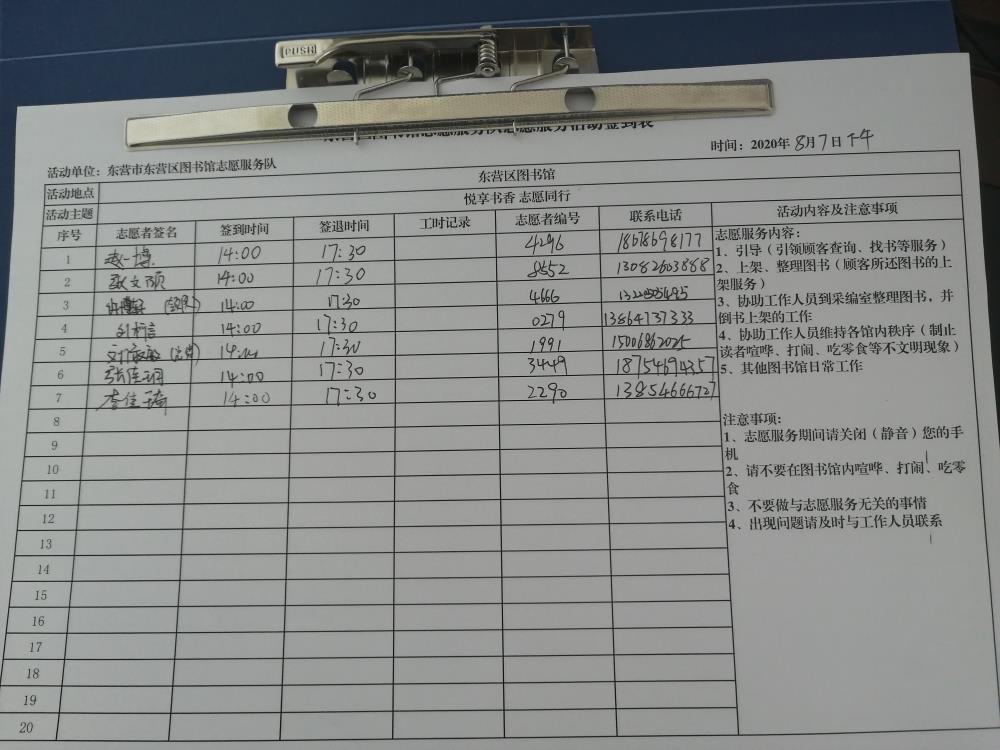 PUSH
图书馆志愿服务队志愿服务活动签到表
时间：2020年 8月7日 下午
活动单位：东营市东营区图书馆志愿服务队
活动地点 东营区图书馆
活动主题 悦享书香 志愿同行
序号 志愿者签名 签到时间 签退时间 工时记录 志愿者编号 联系电话 活动内容及注意事项
1 赵一博 14:00 17:30 4296 18678698177
2 14:00 17:30 8552 13082603888
3 14:00 17:30 4666
4 14:00 17:30 0279 13864737333
5 17:30 1991 15006862025
6 张佳羽 14:00 17:30 3449 18754694357
7 李佳琦 14:00 17:30 2290 13854666727
8
9
10
11
12
13
14
15
16
17
18
19
20
志愿服务内容：
1、引导（引领顾客查询、找书等服务）
2、上架、整理图书（顾客所还图书的上
架服务）
3、协助工作人员到采编室整理图书，并
倒书上架的工作
4、协助工作人员维持各馆内秩序（制止
读者喧哗、打闹、吃零食等不文明现象）
5、其他图书馆日常工作
注意事项：
1、志愿服务期间请关闭（静音）您的手
机
2、请不要在图书馆内喧哗、打闹、吃零
食
3、不要做与志愿服务无关的事情
4、出现问题请及时与工作人员联系